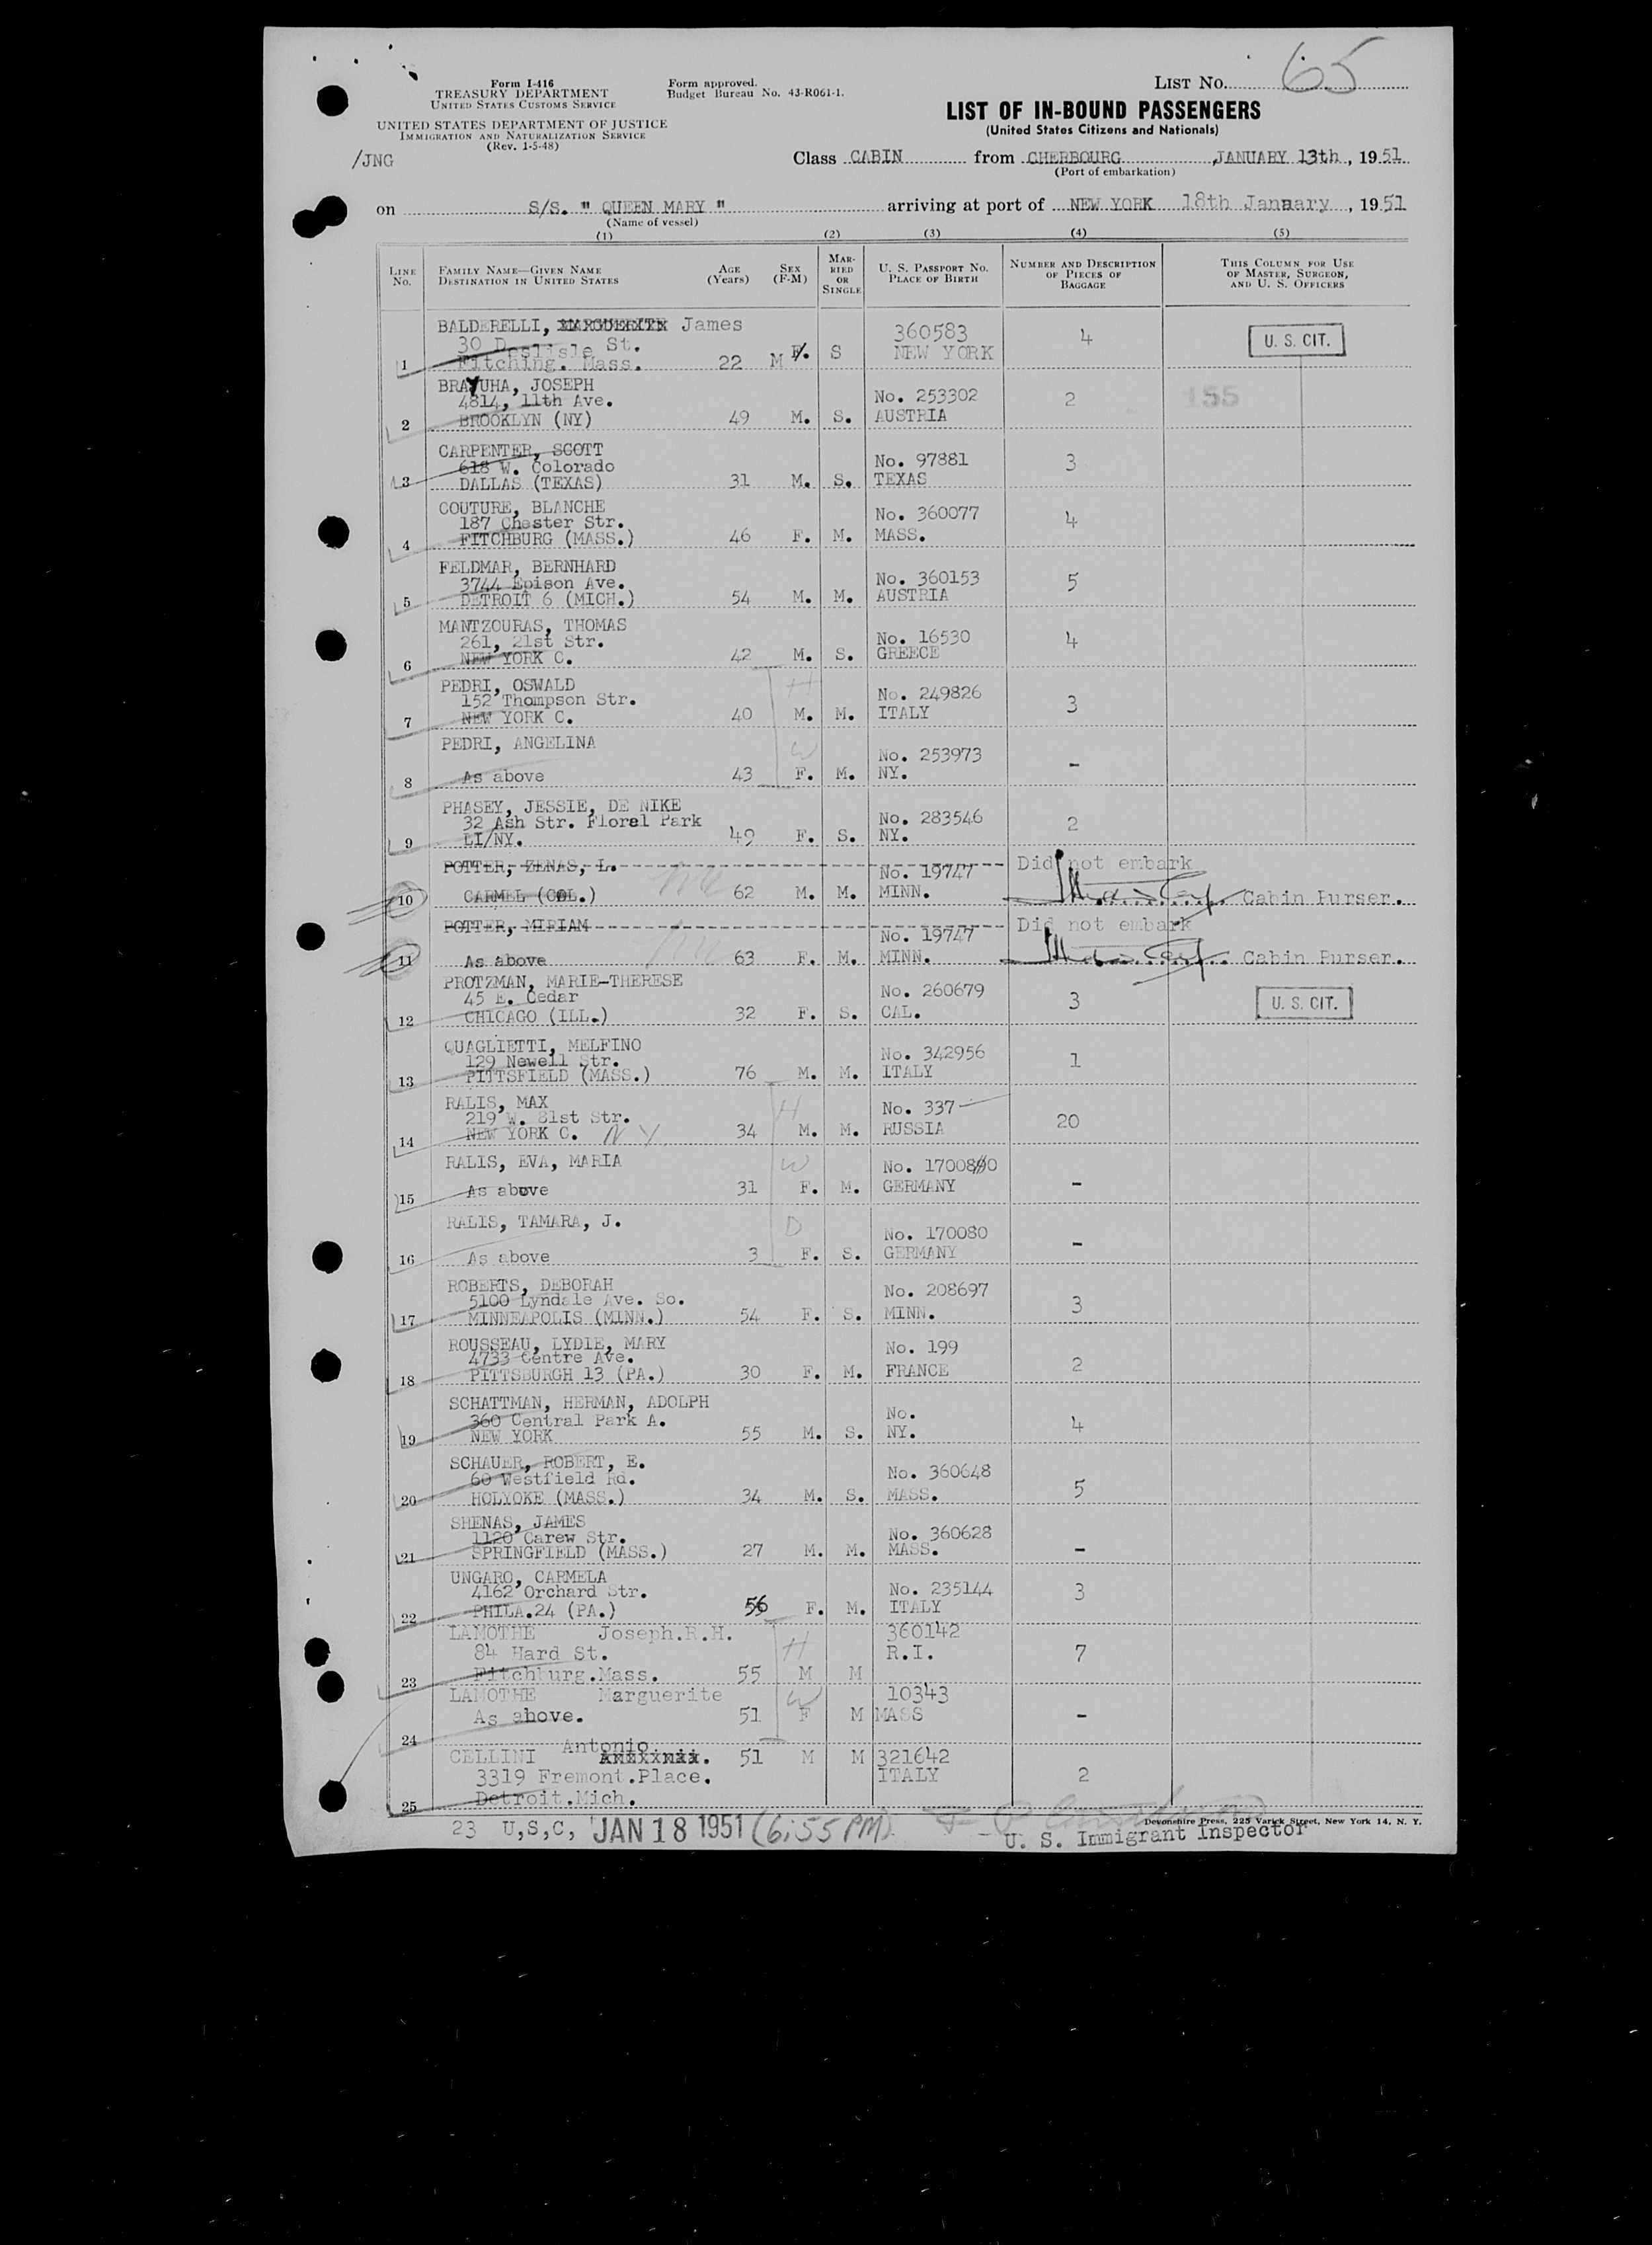 LIST No. 65
Form I-416
TREASURY DEPARTMENT
UNITED STATES CUSTOMS SERVICE
Form approved.
Budget Bureau No. 43-R061-1.
UNITED STATES DEPARTMENT OF JUSTICE
IMMIGRATION AND NATURALIZATION SERVICE
(Rev. 1-5-48)
/JNG
LIST OF IN-BOUND PASSENGERS
(United States Citizens and Nationals)
Class CABIN from CHERBOURG JANUARY 13th, 1951
(Port of embarkation)
on S/S. " QUEEN MARY " arriving at port of NEW YORK 18th January, 1951
(Name of vessel)
(1) (2) (3) (4) (5)
LINE No. FAMILY NAME—GIVEN NAME DESTINATION IN UNITED STATES AGE (Years) SEX (F-M) MARRIED OR SINGLE U. S. PASSPORT No. PLACE OF BIRTH NUMBER AND DESCRIPTION OF PIECES OF BAGGAGE THIS COLUMN FOR USE OF MASTER, SURGEON, AND U. S. OFFICERS
BALDERELLI, MARGUERITE James 360583 4 U. S. CIT.
30 St.
1 Fitching. Mass. 22 M F. S NEW YORK
BRAYUHA, JOSEPH No. 253302 2 155
4814, 11th Ave.
2 BROOKLYN (NY) 49 M. S. AUSTRIA
CARPENTER, SCOTT No. 97881 3
618 W. Colorado
3 DALLAS (TEXAS) 31 M. S. TEXAS
COUTURE, BLANCHE No. 360077 4
187 Chester Str.
4 FITCHBURG (MASS.) 46 F. M. MASS.
FELDMAR, BERNHARD No. 360153 5
3744 Epison Ave.
5 DETROIT 6 (MICH.) 54 M. M. AUSTRIA
MANTZOURAS, THOMAS No. 16530 4
261, 21st Str.
6 NEW YORK C. 42 M. S. GREECE
PEDRI, OSWALD H No. 249826 3
152 Thompson Str.
7 NEW YORK C. 40 M. M. ITALY
PEDRI, ANGELINA W No. 253973 -
8 As above 43 F. M. NY.
PHASEY, JESSIE, DE NIKE No. 283546 2
32 Ash Str. Floral Park
9 LI/NY. 49 F. S. NY.
POTTER, ZENAS, L. No. 19747 Did not embark
10 CARMEL (COL.) 62 M. M. MINN. Cabin Purser.
POTTER, MIRIAM No. 19747 Did not embark
11 As above 63 F. M. MINN. Cabin Purser.
PROTZMAN, MARIE-THERESE No. 260679 3 U. S. CIT.
45 E. Cedar
12 CHICAGO (ILL.) 32 F. S. CAL.
QUAGLIETTI, MELFINO No. 342956 1
129 Newell Str.
13 PITTSFIELD (MASS.) 76 M. M. ITALY
RALIS, MAX H No. 337 20
219 W. 81st Str.
14 NEW YORK C. N Y 34 M. M. RUSSIA
RALIS, EVA, MARIA W No. 170080 -
15 As above 31 F. M. GERMANY
RALIS, TAMARA, J. D No. 170080 -
16 As above 3 F. S. GERMANY
ROBERTS, DEBORAH No. 208697 3
5100 Lyndale Ave. So.
17 MINNEAPOLIS (MINN.) 54 F. S. MINN.
ROUSSEAU, LYDIE, MARY No. 199 2
4733 Centre Ave.
18 PITTSBURGH 13 (PA.) 30 F. M. FRANCE
SCHATTMAN, HERMAN, ADOLPH No. 4
360 Central Park A.
19 NEW YORK 55 M. S. NY.
SCHAUER, ROBERT, E. No. 360648 5
60 Westfield Rd.
20 HOLYOKE (MASS.) 34 M. S. MASS.
SHENAS, JAMES No. 360628 -
1120 Carew Str.
21 SPRINGFIELD (MASS.) 27 M. M. MASS.
UNGARO, CARMELA No. 235144 3
4162 Orchard Str.
22 PHILA.24 (PA.) 56 F. M. ITALY
LAMOTHE Joseph.R.H. H 360142 7
84 Hard St. R.I.
23 Fitchburg.Mass. 55 M M
LAMOTHE Marguerite W 10343 -
As above. 51 F M MASS
24
CELLINI Antonio 51 M M 321642 2
3319 Fremont.Place. ITALY
25 Detroit.Mich.
23 U,S,C, JAN 18 1951 (6:55 PM)
Devonshire Press, 225 Varick Street, New York 14, N. Y.
U. S. Immigrant Inspector